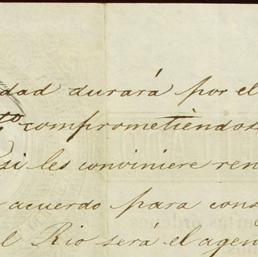 dad durará por el
comprometiéndos
si les conviniere ren
acuerdo para cons
l Rio será el agen